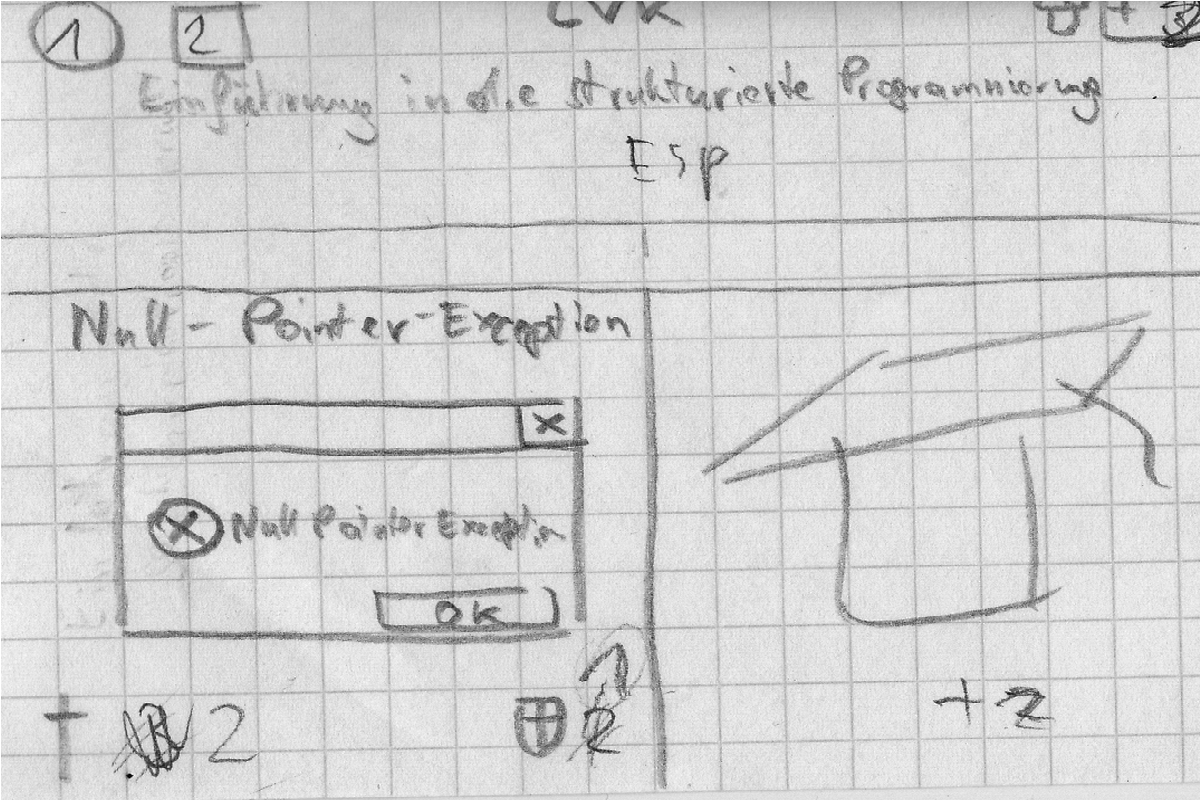 1 2
Einführung in die strukturierte Programmierung
ESP
Null-Pointer-Exception
X
X Null Pointer Exception
OK
2
+2